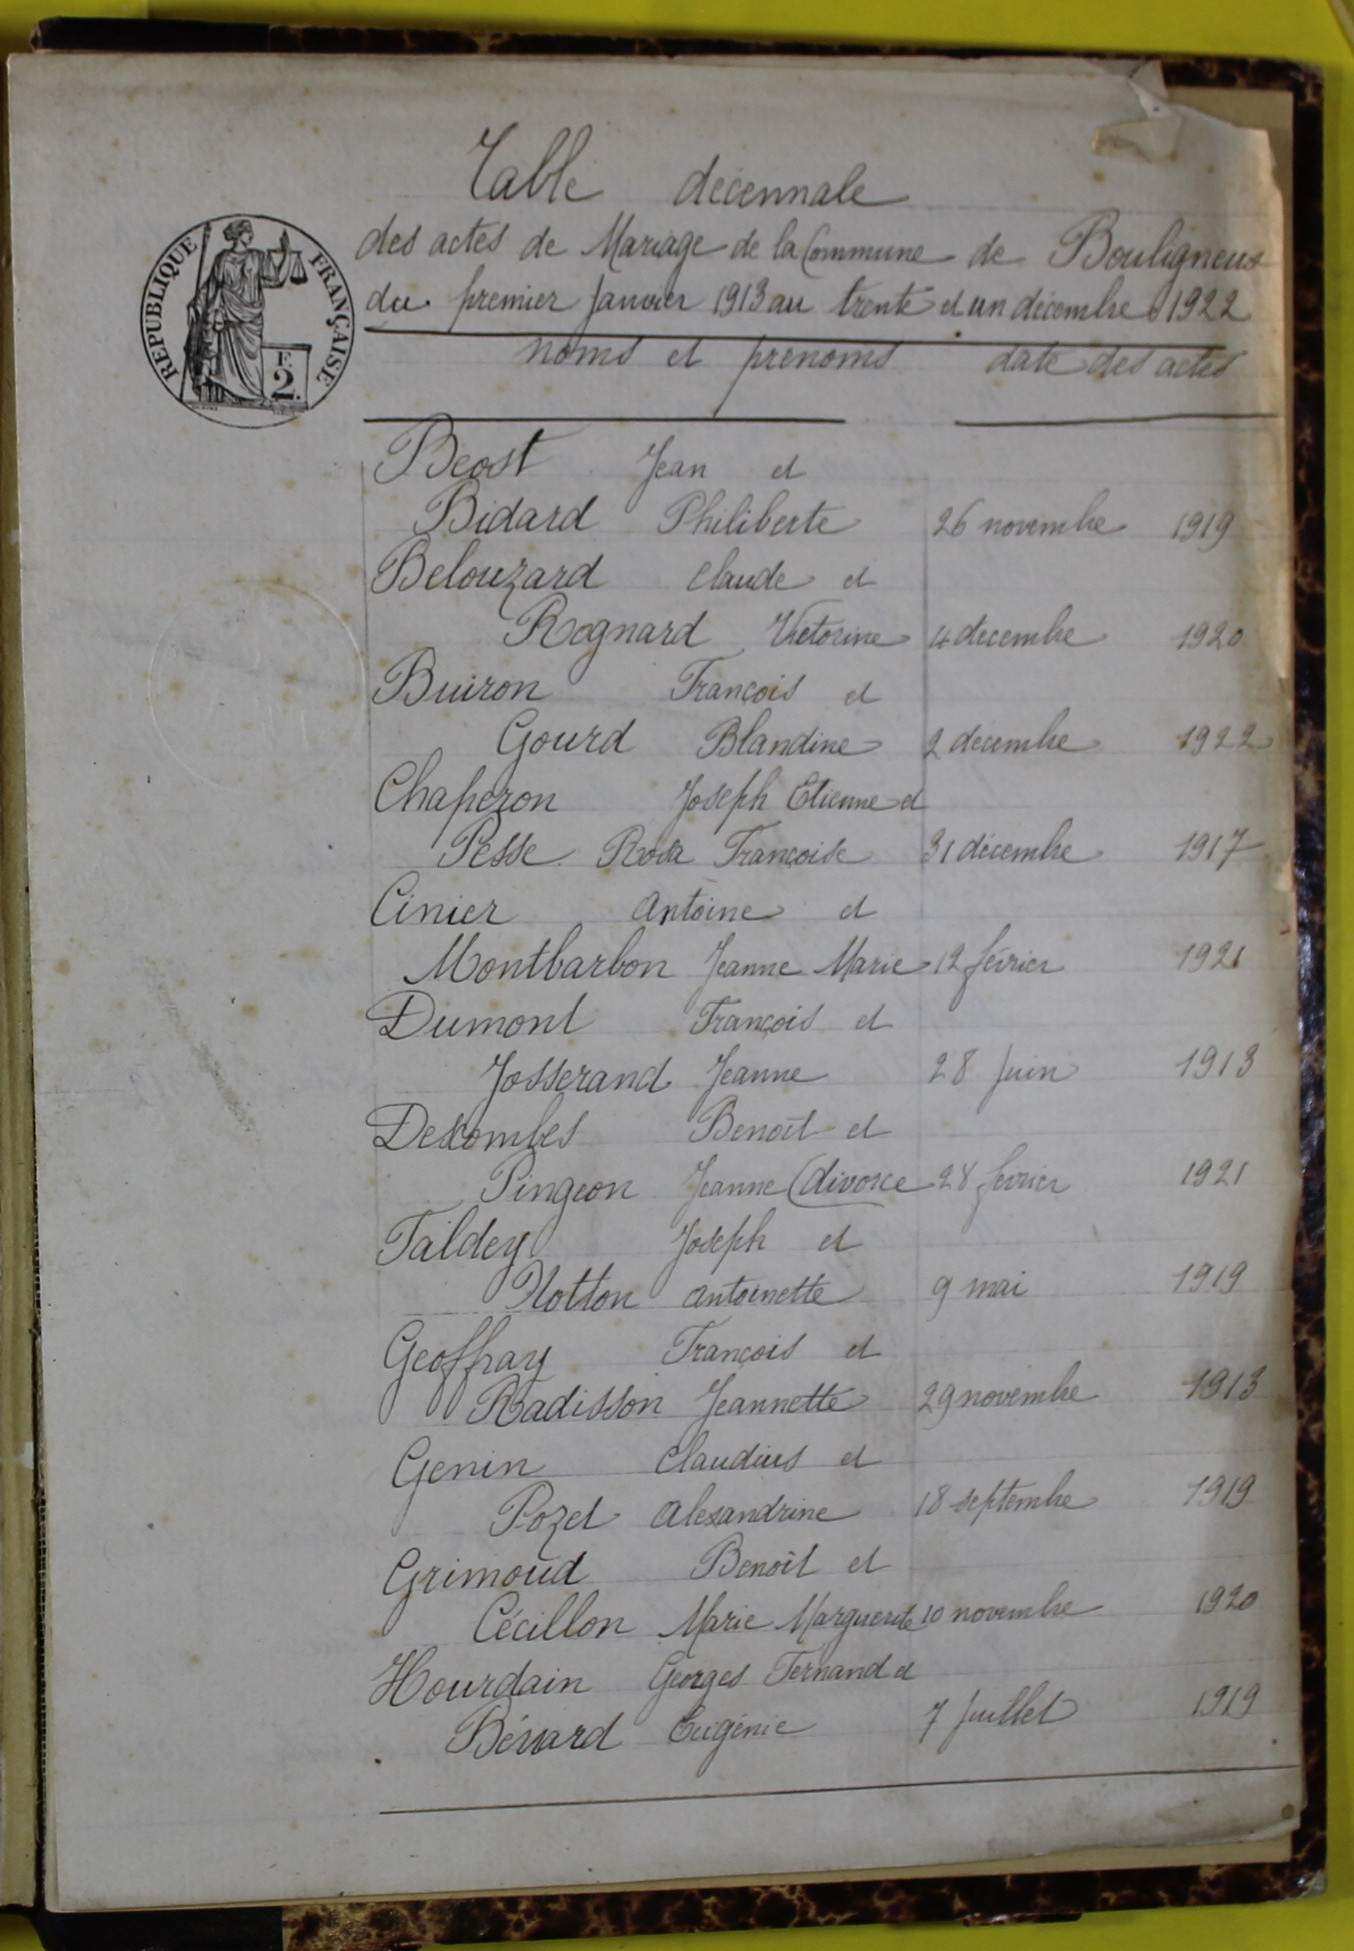 Table décennale
des actes de Mariage de la Commune de Bouligneux
du premier Janvier 1913 au trente et un décembre 1922
RÉPUBLIQUE FRANÇAISE
F.
2.
noms et prénoms date des actes
Beost Jean et
Bidard Philiberte 26 novembre 1919
Belouzard Claude et
Rognard Victorine 4 decembre 1920
Buiron François et
Gourd Blandine 2 décembre 1922
Chaperon Joseph Etienne et
Pesse Rosa Françoise 31 décembre 1917
Cinier Antoine et
Montbarbon Jeanne Marie 12 février 1921
Dumont François et
Josserand Jeanne 28 Juin 1913
Descombes Benoît et
Pingeon Jeanne (divorce 28 fevrier 1921
Faldey Joseph et
Notton Antoinette 9 mai 1919
Geoffray François et
Radisson Jeannette 29 novembre 1913
Genin Claudius et
Pozet Alexandrine 18 septembre 1919
Grimoud Benoît et
Cécillon Marie Marguerite 10 novembre 1920
Hourdain Georges Fernand et
Bérard Eugénie 7 Juillet 1919